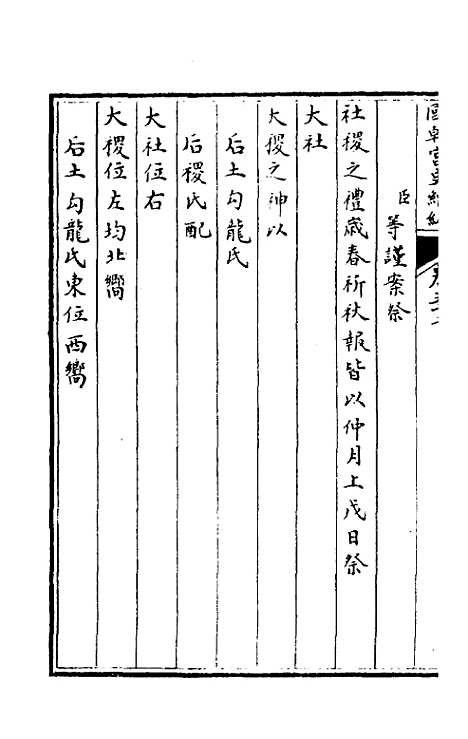 國朝宮史續編
臣等謹案祭
社稷之禮歲春祈秋報皆以仲月上戊日祭
大社
大稷之神以
后土勾龍氏
后稷氏配
大社位右
大稷位左均北嚮
后土勾龍氏東位西嚮